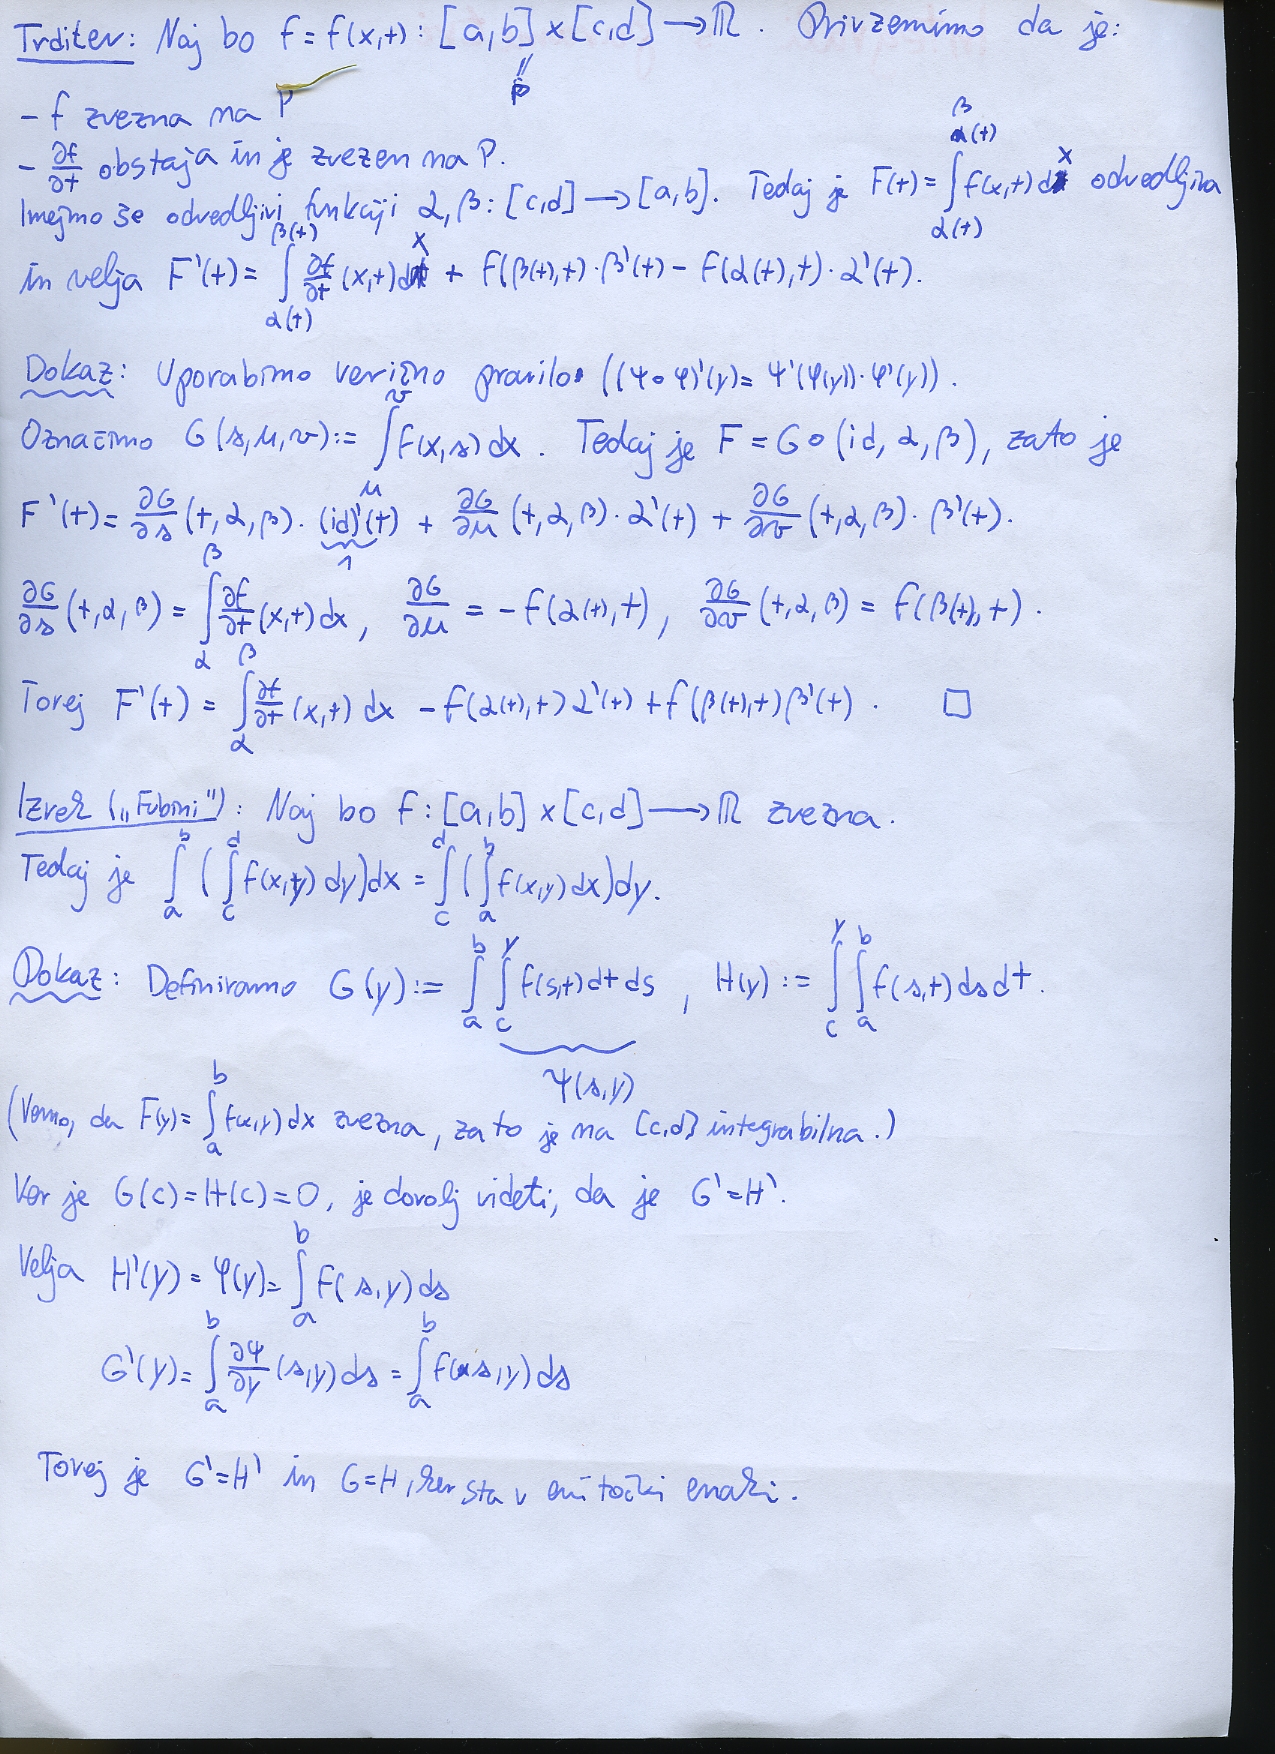 Trditev: Naj bo f = f(x,t) : [a,b] × [c,d] → ℝ. Privzemimo da je:
|| P
- f zvezna na P
- ∂f/∂t obstaja in je zvezen na P.
Imejmo še odvedljivi funkciji α, β : [c,d] → [a,b]. Tedaj je F(t) = ∫_{α(t)}^{β(t)} f(x,t) dx odvedljiva
in velja F'(t) = ∫_{α(t)}^{β(t)} ∂f/∂t (x,t) dx + f(β(t),t)·β'(t) − f(α(t),t)·α'(t).
Dokaz: Uporabimo verižno pravilo ((ψ∘φ)'(y) = ψ'(φ(y))·φ'(y)).
Označimo G(s,u,v) := ∫_u^v f(x,s) dx. Tedaj je F = G∘(id, α, β), zato je
F'(t) = ∂G/∂s (t,α,β)·(id)'(t) + ∂G/∂u (t,α,β)·α'(t) + ∂G/∂v (t,α,β)·β'(t).
1
∂G/∂s (t,α,β) = ∫_α^β ∂f/∂t (x,t) dx, ∂G/∂u = −f(α(t),t), ∂G/∂v (t,α,β) = f(β(t),t).
Torej F'(t) = ∫_α^β ∂f/∂t (x,t) dx − f(α(t),t) α'(t) + f(β(t),t) β'(t). □
Izrek („Fubini"): Naj bo f : [a,b] × [c,d] → ℝ zvezna.
Tedaj je ∫_a^b (∫_c^d f(x,y) dy) dx = ∫_c^d (∫_a^b f(x,y) dx) dy.
Dokaz: Definiramo G(y) := ∫_a^b ∫_c^y f(s,t) dt ds, H(y) := ∫_c^y ∫_a^b f(s,t) ds dt.
ψ(s,y)
(Vemo, da F(y) = ∫_a^b f(x,y) dx zvezna, zato je na [c,d] integrabilna.)
Ker je G(c) = H(c) = 0, je dovolj videti, da je G' = H'.
Velja H'(y) = φ(y) = ∫_a^b f(s,y) ds
G'(y) = ∫_a^b ∂ψ/∂y (s,y) ds = ∫_a^b f(s,y) ds
Torej je G' = H' in G = H, ker sta v eni točki enaki.